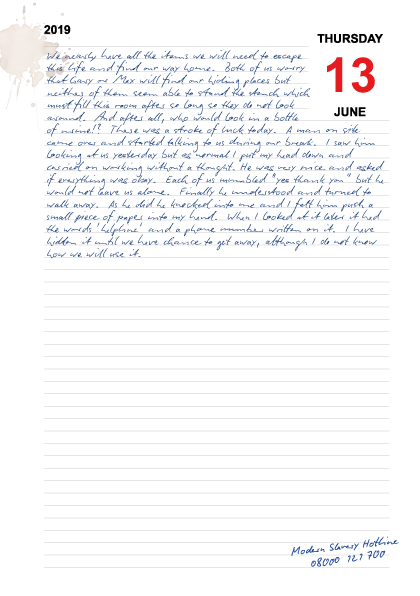 2019
THURSDAY
13
JUNE
We nearly have all the items we will need to escape
this life and find our way home. Both of us worry
that Gary or Max will find our hiding places but
neither of them seem able to stand the stench which
must fill this room after so long so they do not look
around. And after all, who would look in a bottle
of urine!? There was a stroke of luck today. A man on site
came over and started talking to us during our break. I saw him
looking at us yesterday but as normal I put my head down and
carried on working without a thought. He was very nice and asked
if everything was okay. Each of us mumbled "yes thank you" but he
would not leave us alone. Finally he understood and turned to
walk away. As he did he knocked into me and I felt him push a
small piece of paper into my hand. When I looked at it later it had
the words 'helpline' and a phone number written on it. I have
hidden it until we have chance to get away, although I do not know
how we will use it.
Modern Slavery Hotline
08000 121 700